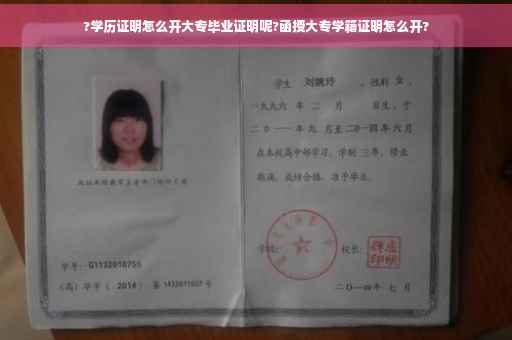 ?学历证明怎么开大专毕业证明呢?函授大专学籍证明怎么开?
学生 刘婉玲 ,性别 女 ,
一九九六 年 二 月 日生,于
二〇一一年九 月至二〇一四年六月
在本校高中部学习,学制 三年,修业
期满,成绩合格,准予毕业。
学号: G1132010755
学校: 校长:
(高)毕字( 2014 )第 1432011027 号
二〇一四年 七 月